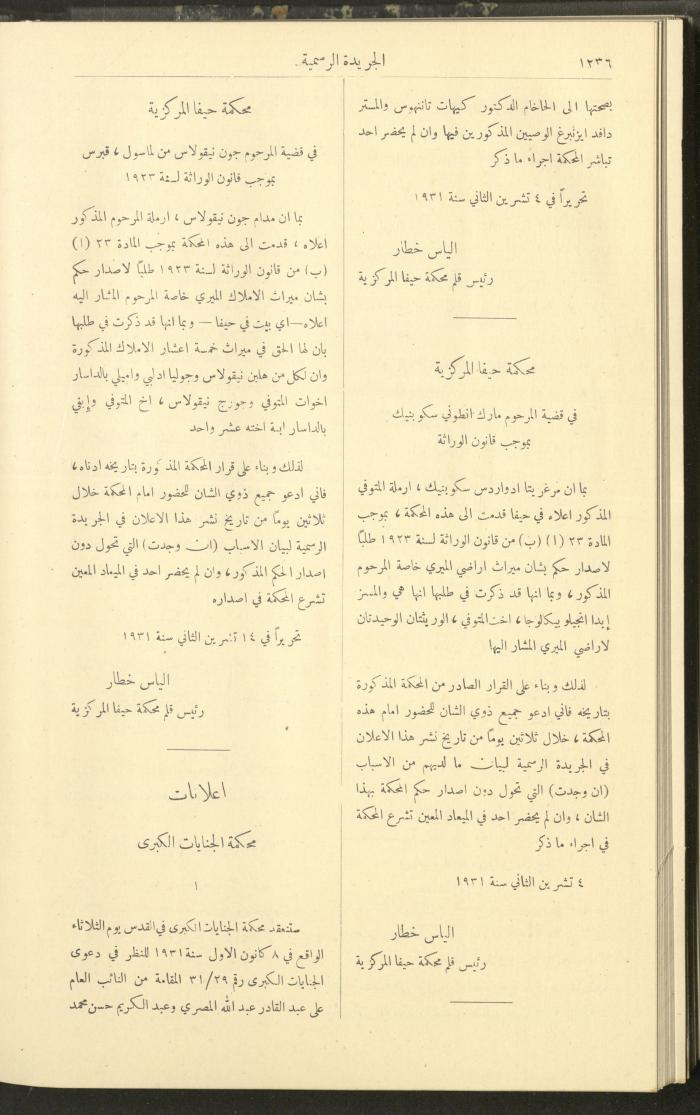 ١٢٣٦
الجريدة الرسمية
بصحتها الى الحاخام الدكتور كيهات تاننهوس والمستر
دافد ايزنبرغ الوصيين المذكورين فيها وان لم يحضر احد
تباشر المحكمة اجراء ما ذكر
تحريراً في ٤ تشرين الثاني سنة ١٩٣١
الياس خطار
رئيس قلم محكمة حيفا المركزية
محكمة حيفا المركزية
في قضية المرحوم مارك انطوني سكوبنيك
بموجب قانون الوراثة
بما ان مرغريتا ادواردس سكوبنيك ، ارملة المتوفي
المذكور اعلاه في حيفا قدمت الى هذه المحكمة ، بموجب
المادة ٢٣ (ا) (ب) من قانون الوراثة لسنة ١٩٢٣ طلبًا
لاصدار حكم بشان ميراث اراضي الميري خاصة المرحوم
المذكور ، وبما انها قد ذكرت في طلبها انها هي والمسز
إيدا انجيلو بيكالوجا ، اخت المتوفي ، الوريثتان الوحيدتان
لاراضي الميري المشار اليها
لذلك وبناء على القرار الصادر من المحكمة المذكورة
بتاريخه فاني ادعو جميع ذوي الشان للحضور امام هذه
المحكمة ، خلال ثلاثين يومًا من تاريخ نشر هذا الاعلان
في الجريدة الرسمية لبيان ما لديهم من الاسباب
(ان وجدت) التي تحول دون اصدار حكم المحكمة بهذا
الشان ، وان لم يحضر احد في الميعاد المعين تشرع المحكمة
في اجراء ما ذكر
٤ تشرين الثاني سنة ١٩٣١
الياس خطار
رئيس قلم محكمة حيفا المركزية
محكمة حيفا المركزية
في قضية المرحوم جون نيقولاس من لماسول ، قبرس
بموجب قانون الوراثة لسنة ١٩٢٣
بما ان مدام جون نيقولاس ، ارملة المرحوم المذكور
اعلاه ، قدمت الى هذه المحكمة بموجب المادة ٢٣ (ا)
(ب) من قانون الوراثة لسنة ١٩٢٣ طلبًا لاصدار حكم
بشان ميراث الاملاك الميري خاصة المرحوم المشار اليه
اعلاه—اي بيت في حيفا — وبما انها قد ذكرت في طلبها
بان لها الحق في ميراث خمسة اعشار الاملاك المذكورة
وان لكل من هلين نيقولاس وجوليا ادلبي واميلي بالداسار
اخوات المتوفي وجورج نيقولاس ، اخ المتوفي وإيفي
بالداسار ابنة اخته عشر واحد
لذلك وبناء على قرار المحكمة المذكورة بتاريخه ادناه ،
فاني ادعو جميع ذوي الشان للحضور امام المحكمة خلال
ثلاثين يومًا من تاريخ نشر هذا الاعلان في الجريدة
الرسمية لبيان الاسباب (ان وجدت) التي تحول دون
اصدار الحكم المذكور ، وان لم يحضر احد في الميعاد المعين
تشرع المحكمة في اصداره
تحريراً في ١٤ تشرين الثاني سنة ١٩٣١
الياس خطار
رئيس قلم محكمة حيفا المركزية
اعلانات
محكمة الجنايات الكبرى
١
ستنعقد محكمة الجنايات الكبرى في القدس يوم الثلاثاء
الواقع في ٨ كانون الاول سنة ١٩٣١ للنظر في دعوى
الجنايات الكبرى رقم ٣١/٢٩ المقامة من النائب العام
على عبد القادر عبد الله المصري وعبد الكريم حسن محمد